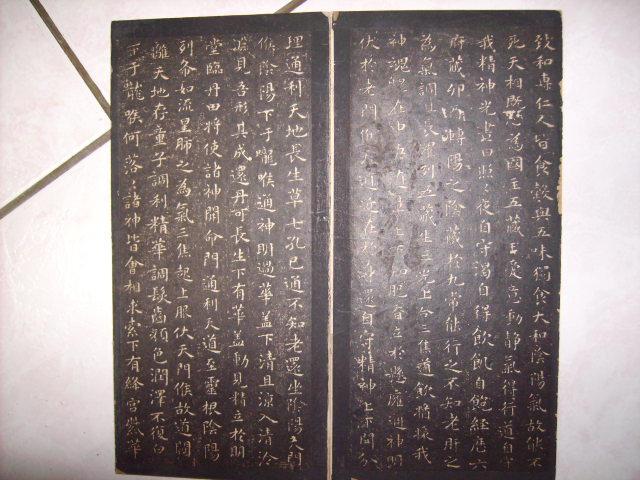 致和專仁人皆食穀與五味獨食大和陰陽氣故能不
死天相既心為國主五藏王受意動靜氣得行道自守
我精神光晝日照照夜自守渴自得飲飢自飽經歷六
府藏卯酉轉陽之陰藏於九常能行之不知老肝之
為氣調且長羅列五藏生三光上合三焦道飲我
神魂魄在中央隨鼻上下知肥香立於懸膺通神明
伏於老門候天道近在於身還自守精神上下開分
理通利天地長生草七孔已通不知老還坐陰陽天門
候陰陽下于嚨喉通神明過華蓋下清且涼入清泠
淵見吾形其成還丹可長生下有華蓋動見精立於明
堂臨丹田將使諸神開命門通利天道至靈根陰陽
列布如流星肺之為氣三焦起上服伏天門候故道闚
離天地存童子調利精華調髮齒顏色潤澤不復白
下于嚨喉何落落諸神皆會相求索下有絳宮紫華